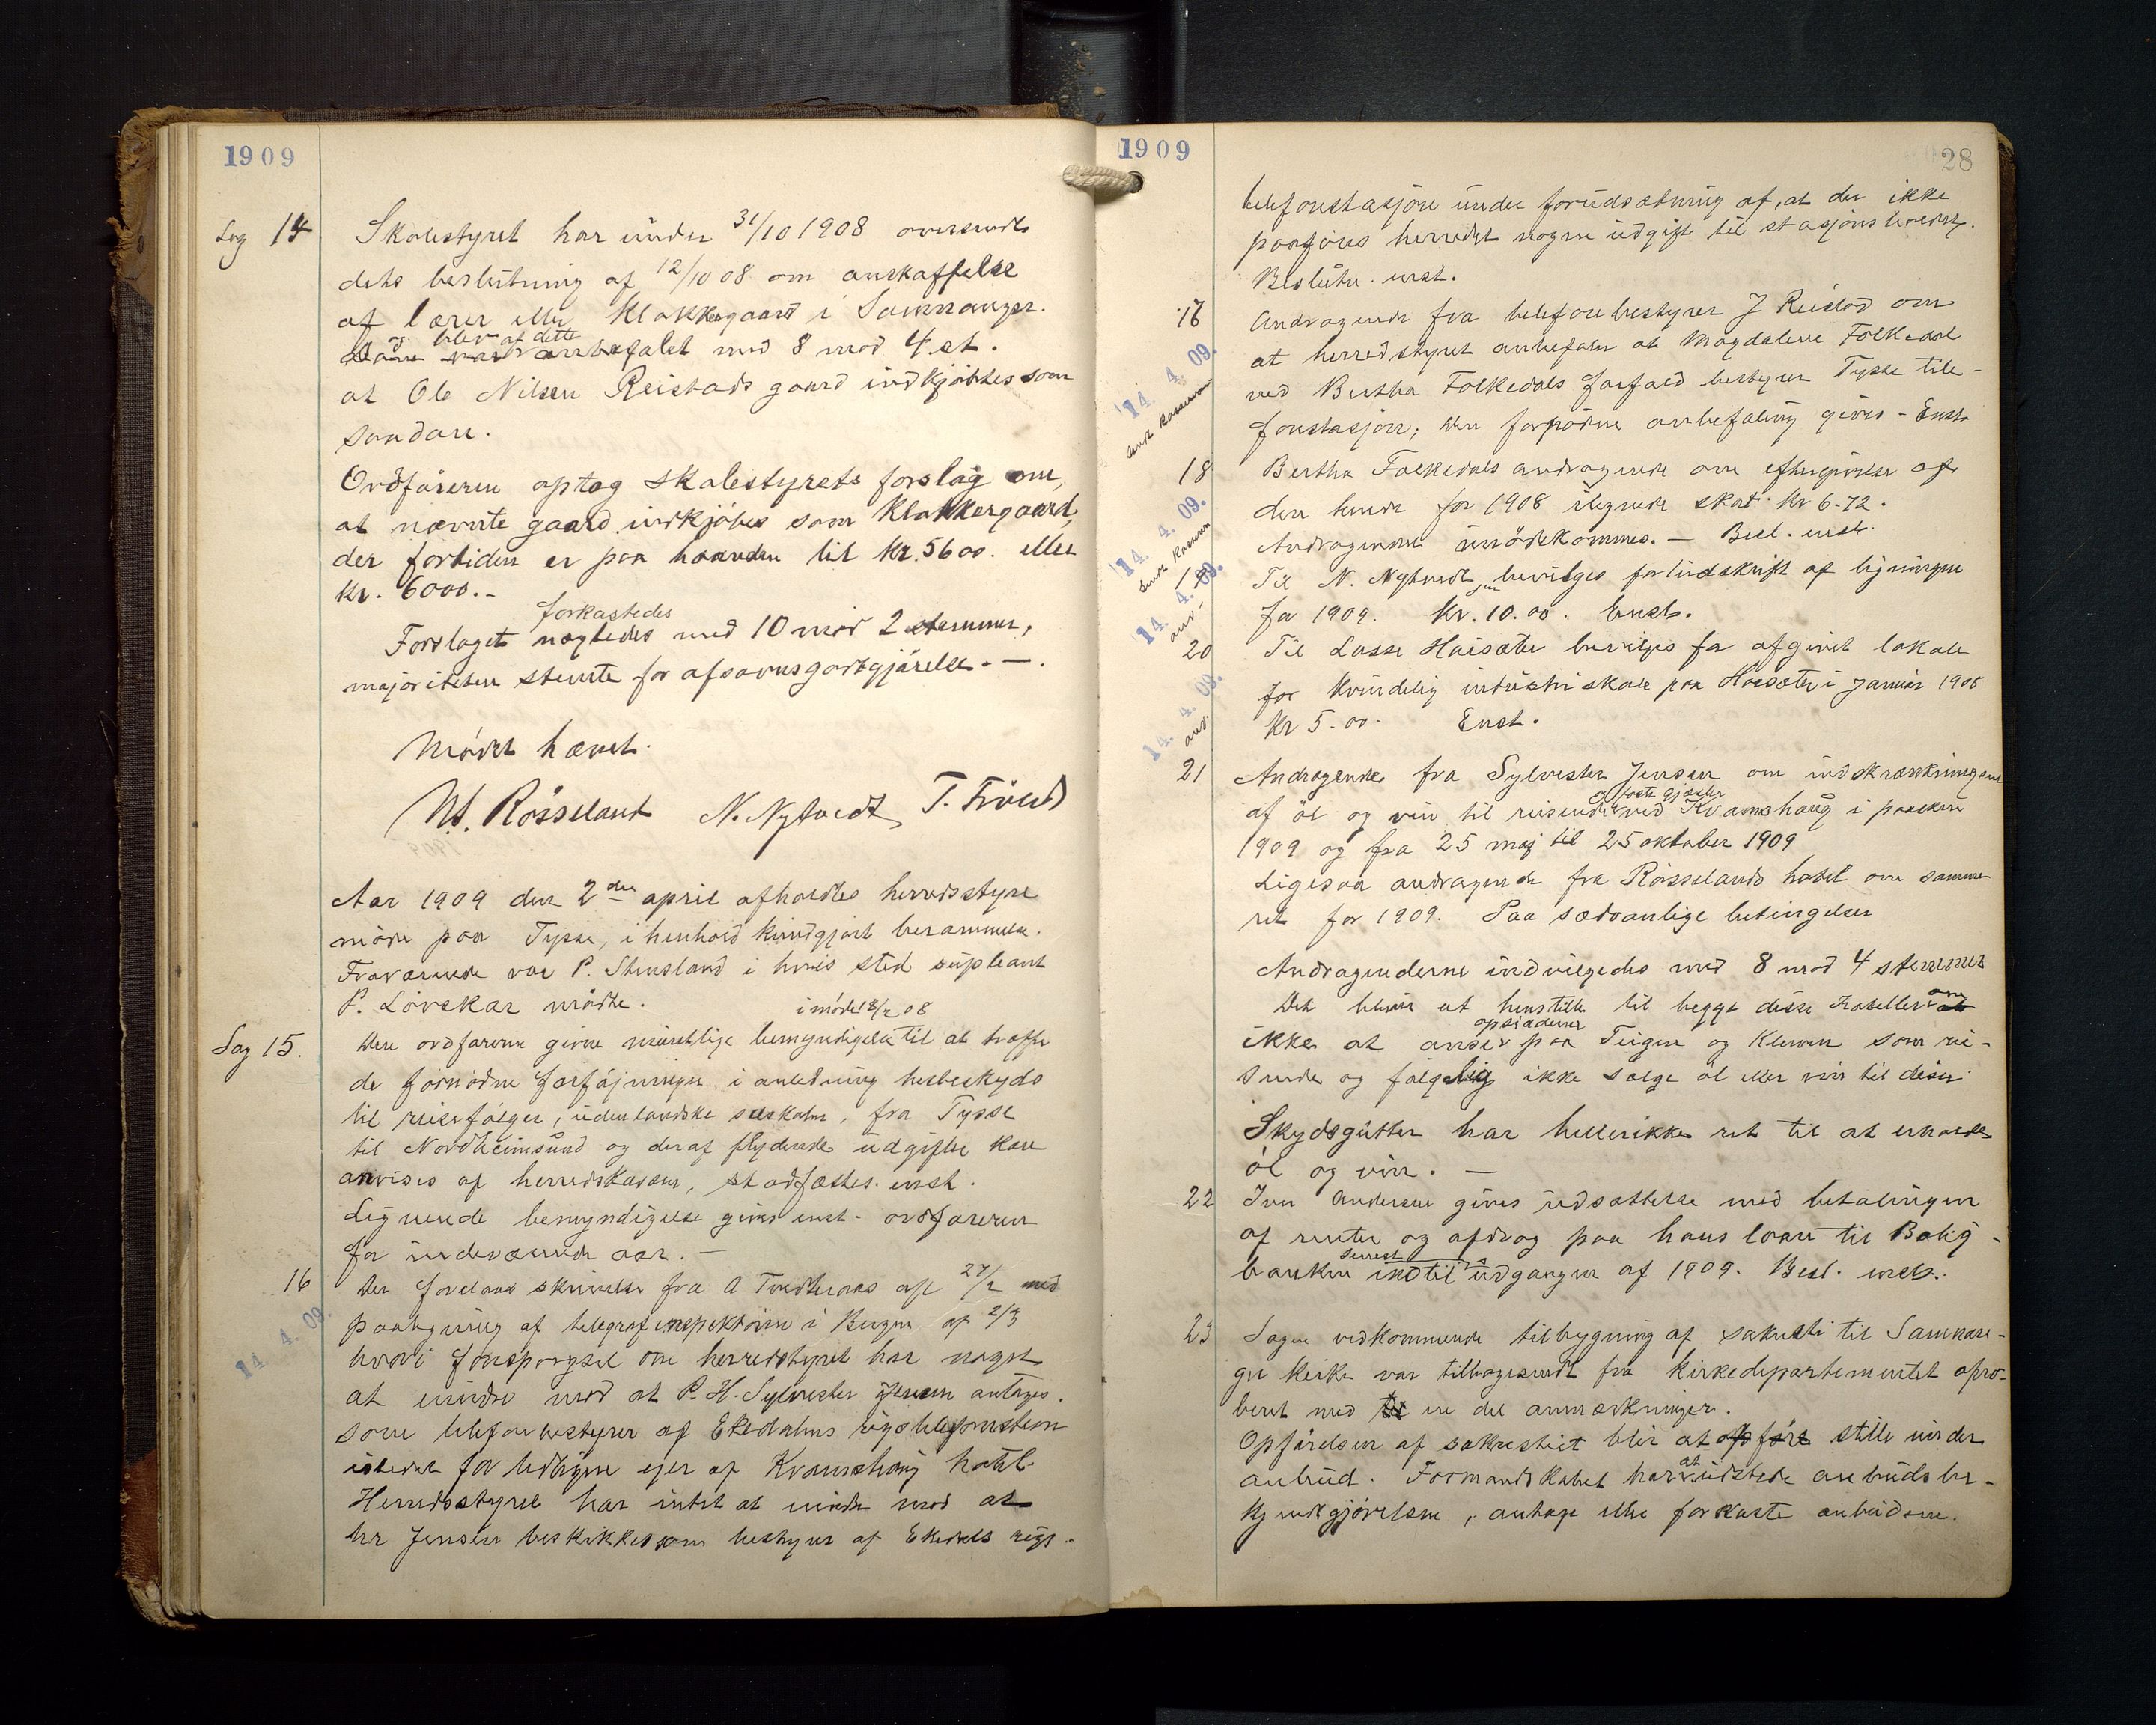 1909
Sag 14
Skolestyret har under 31/10 1908 oversendt
dets beslutning af 12/10 08 om anskaffelse
af lærer eller Klokkergaard i Samnanger.
og blev af dette
anbefalet med 8 mod 4 st.
at Ole Nilsen Reistads gaard indkjøbtes som
saadan.
Ordføreren optog skolestyrets forslag om,
at nævnte gaard indkjøbes som Klokkergaard,
der fortiden er paa haanden til Kr. 5600. eller
Kr. 6000.-
forkastedes
Forslaget nægtedes med 10 mod 2 stemmer,
majoriteten stemte for afsavnsgodtgjørelse. —.
Mødet hævet.
N. Røsseland N. Nytvedt T. Frøland
Aar 1909 den 2den april afholdtes herredsstyre
møde paa Tysse, i henhold kundgjort berammelse.
Fraværende var P. Stensland i hvis sted supleant
P. Løvskar mødte.
i møde 18/2 08
Sag 15.
Den ordføreren givne mundtlige bemyndigelse til at træffe
de fornødne forføininger i anledning hesteskyds
til reisefølger, udenlandske selskaber, fra Tysse
til Nordheimsund og deraf flydende udgifter kan
anvises af herredskassen, stadfæstes. enst.
Lignende bemyndigelse gives enst. ordføreren
for indeværende aar. —
16
14. 4. 09.
Der forelaas skrivelse fra A Tvedteraas af 27/2 med
paategning af telegrafinspektøren i Bergen af 2/3
hvori forespørgsel om herredstyret har noget
at indre mod at P. H. Sylvester Jensen antages
som telefonbestyrer af Ekedalens rigstelefonstation
istedet for tidligere ejer af Kvamshaug hotel.
Herredsstyret har intet at indre mod at
hr Jensen beskikkes som bestyrer af Ekedals rigs-
1909
28
telefonstasjon under forudsætning af, at der ikke
paaføres herredet nogen udgift til stasjons
Beslutn. enst.
17
14. 4. 09.
Andragende fra telefonbestyrer J Reistad om
at herredstyret anbefaler at Magdalene Folkedal
ved Bertha Folkedals forfald bestyrer Tysse tele-
fonstasjon; den forønskede anbefaling gives - Enst.
18
14. 4. 09.
Bertha Folkedals andragende om eftergivelse af
den hende for 1908 ilignede skat kr 6.72.
Andragendet imødekommes. — Besl. enst.
19
14. 4. 09.
Til N. Nytvedt bevilges for indskrift af ligningen
for 1909. Kr. 10.00. Enst.
20
14. 4. 09.
Til Lasse Haisæter bevilges for afgivet lokale
for kvindelig industriskole paa Haisæter i januar 1908
Kr 5.00. Enst.
21
Andragende fra Sylvester Jensen om indskrænkning
og faste gjæster
af øl og vin til reisende ved Kvamshaug i paasken
1909 og fra 25 maj til 25 oktober 1909
Ligesaa andragende fra Røsselands hotel om samme
ret for 1909. Paa sædvanlige betingelser
Andragenderne indvilgedes med 8 mod 4 stemmer
Det blir at henstille til begge disse hoteller om
opsidderne
ikke at anse paa Teigen og Kleven som rei-
sende og følgelig ikke sælge øl eller vin til disse.
Skydsgutter har hellerikke ret til at erholde
øl og vin. —
22
Iver Andersen gives udsættelse med betalingen
af renter og afdrag paa hans laan til Bolig-
senest
banken indtil udgangen af 1909. Besl. enst.
23
Sagen vedkommende tilbygning af sakristi til Samnan-
ger kirke var tilbagesendt fra kirkedepartementet apro-
beret med en del anmærkninger.
Opførelsen af sakristiet blir at stille under
at
anbud. Formandskabet har udstede anbudsbe-
kjendtgjørelsen, antage eller forkaste anbudene.